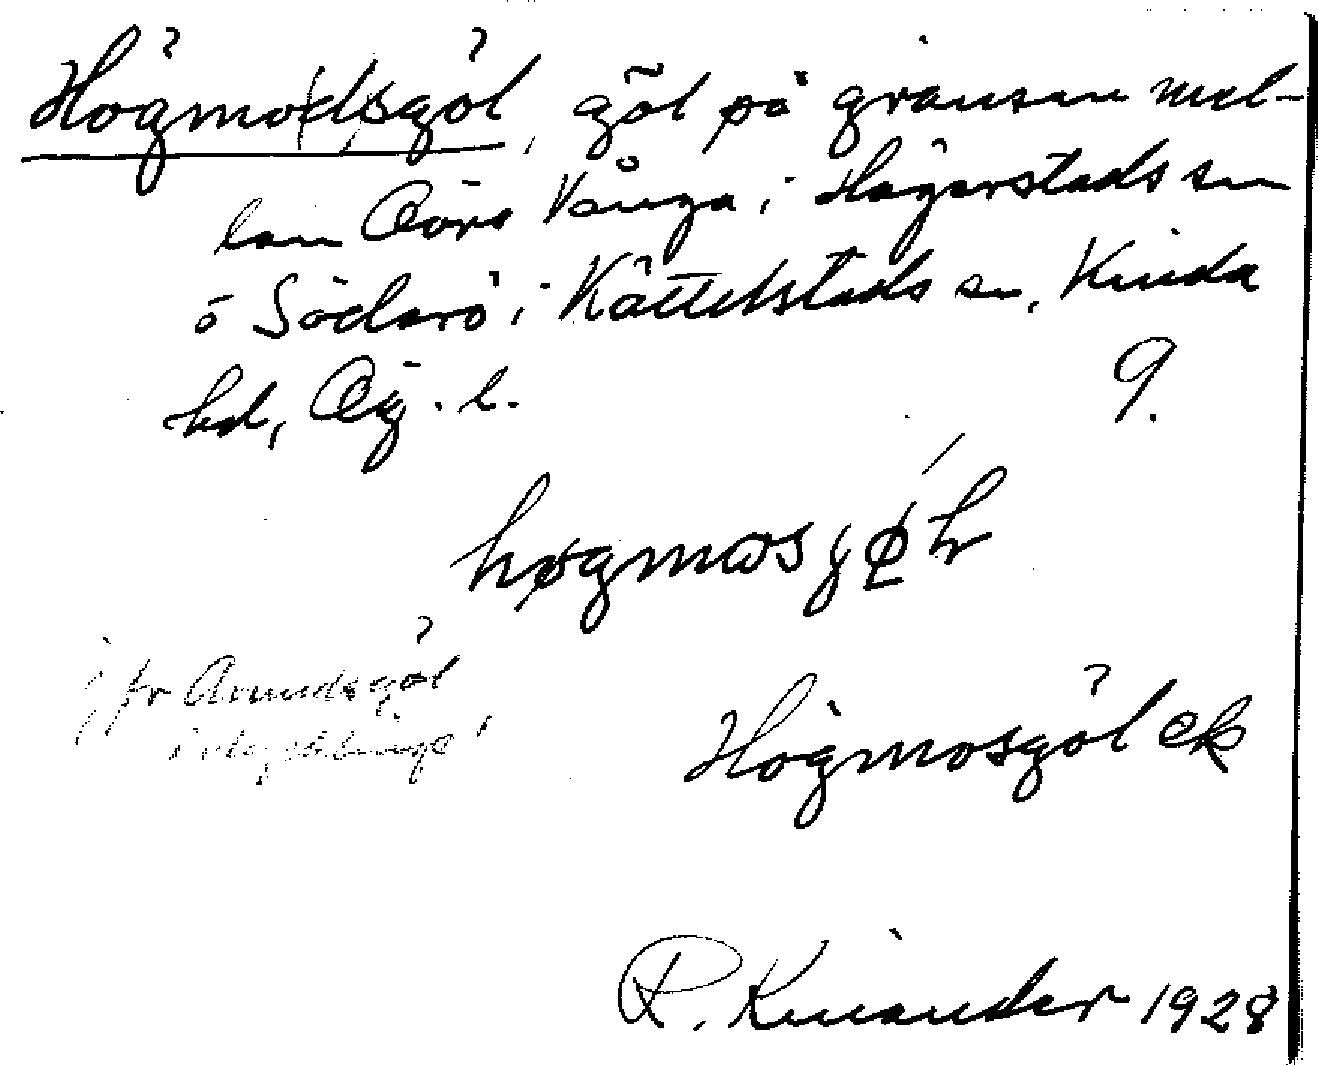 Högmodsgöl, göl på gränsen mel-
lan Övra Vånga i Hägerstads sn
o Söderö i Kättilstads sn, Kinda
hd, Ög. l. 9.
høgmωsjø̱ƚ
jfr Amundsgöl
Högmosgöl ek
R. Kinander 1928